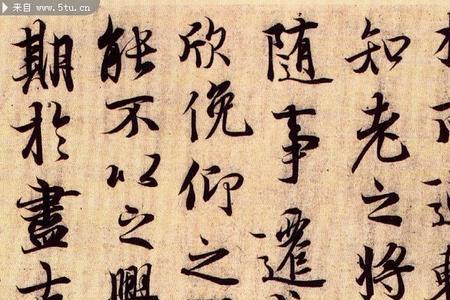 来自 www.5tu.cn
知老之將
隨事遷
欣俛仰之
能不以之興
期於盡古